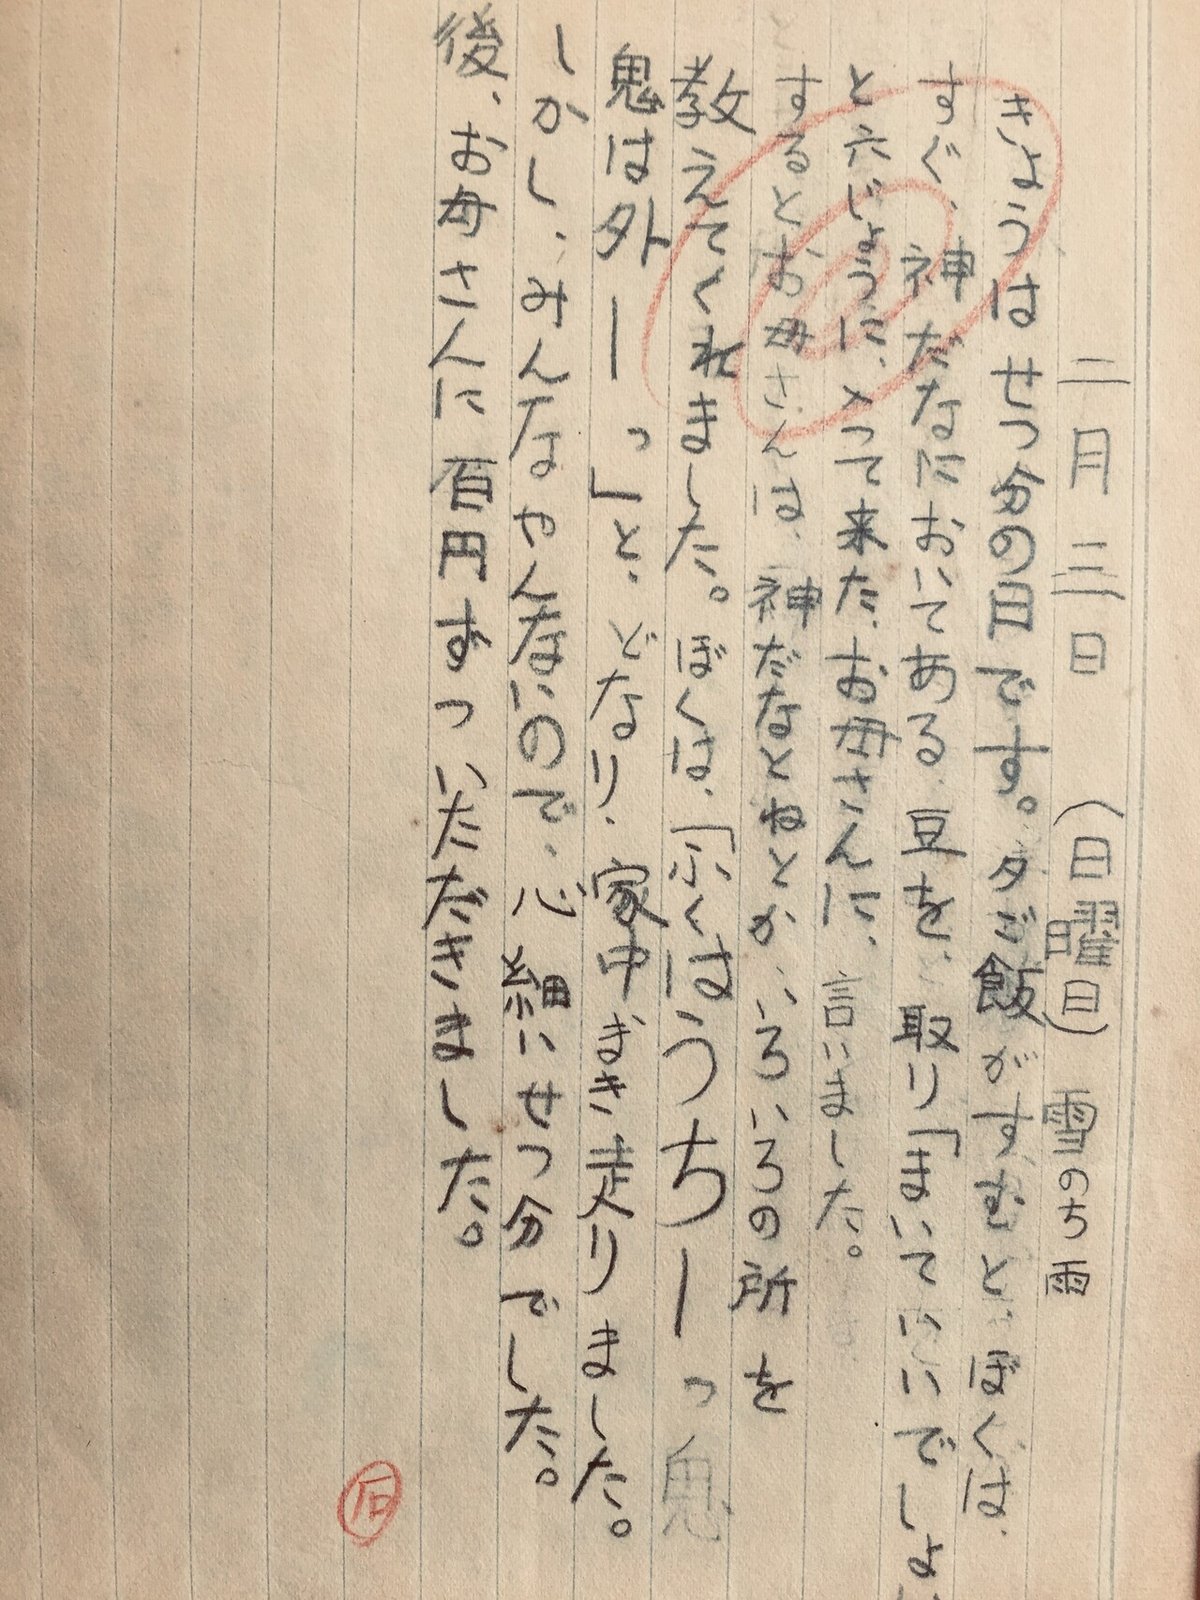 二月三日（日曜日）雪のち雨
きょうはせつ分の日です。夕ご飯がすむと、ぼくは、
すぐ、神だなにおいてある、豆を、取り「まいていいでしょ
と六じょうに、入って来た、お母さんに、言いました。
するとお母さんは、神だなとねとか、いろいろの所を
教えてくれました。ぼくは、「ふくはうちーっ鬼
鬼は外ーっ」と、どなり、家中まき走りました。
しかし、みんなやんないので、心細いせつ分でした。
後、お母さんに百円ずついただきました。